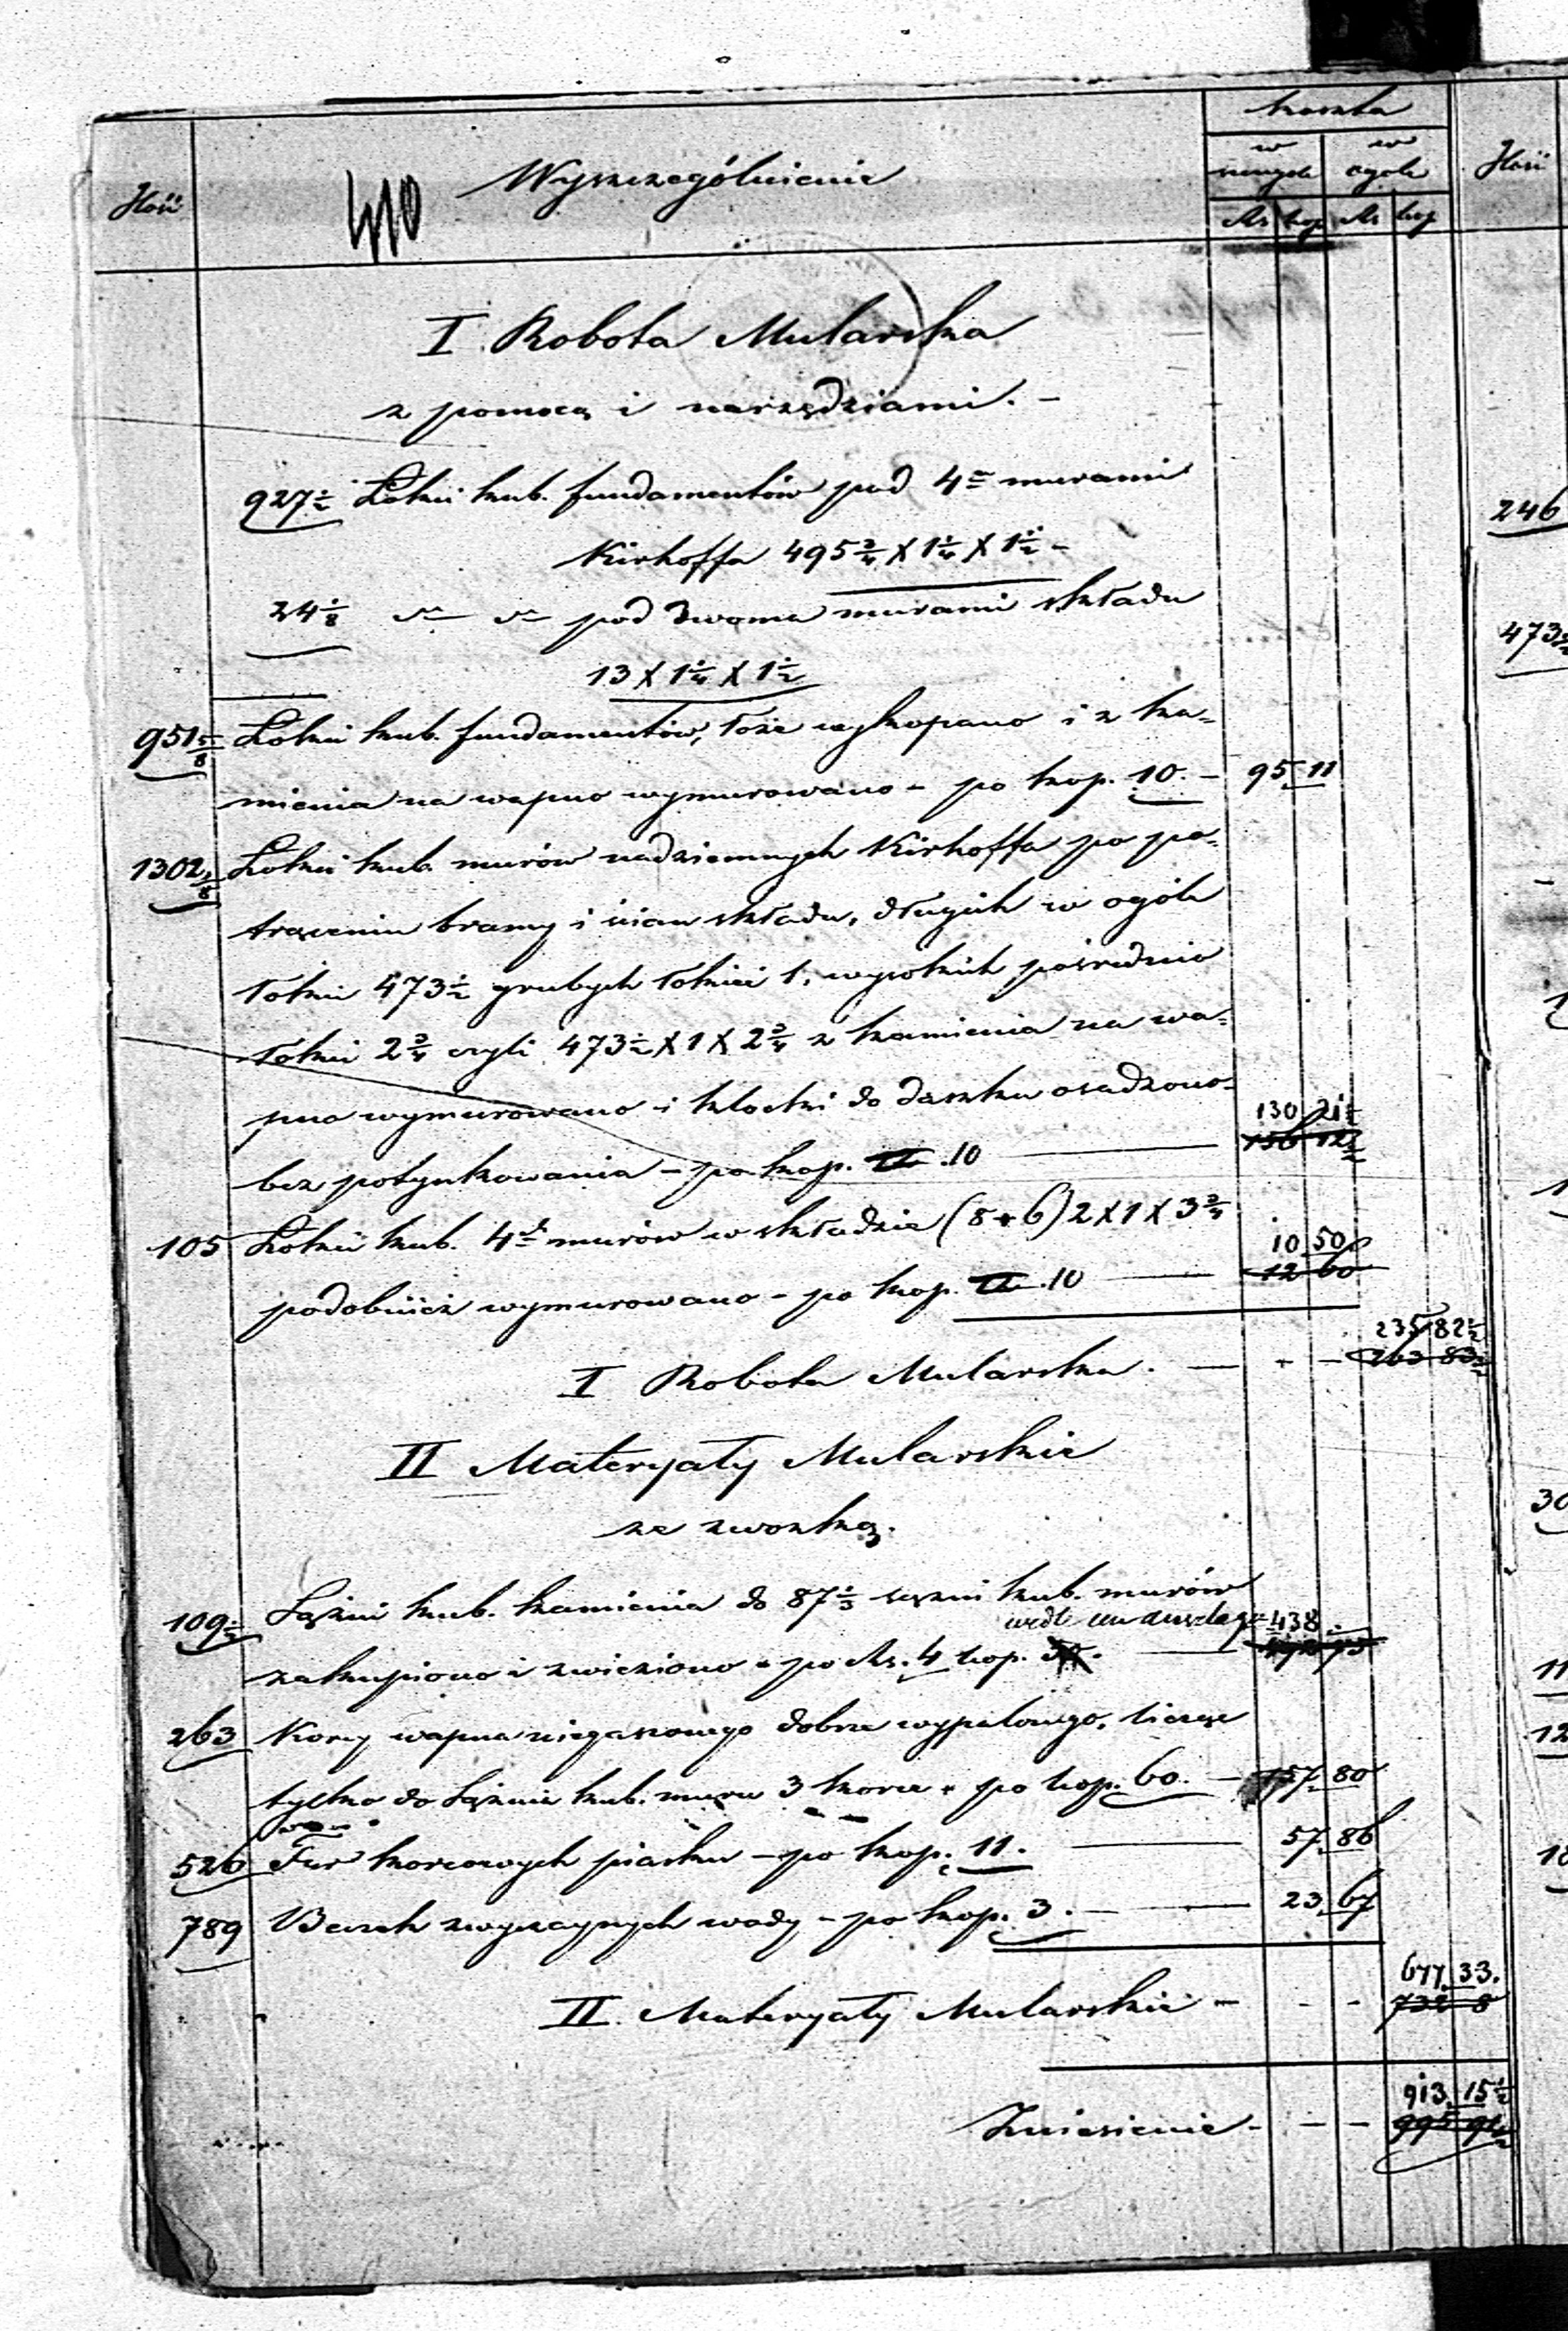 Ilość
410
Wyszczególnienie
koszta
w szczeg. w ogóle
Rs kop Rs kop
Ilość
I Robota Mularska
z pomocą i narzędziami. –
927½ Łokci kub. fundamentów pod 4ma murami
Kirhoffa 495¾ X 1¼ X 1½ –
24⅛ dto dto pod dwoma murami składu
13 X 1¼ X 1½
951⅝ Łokci kub. fundamentów, toże wykopano i z ka=
mienia na wapno wymurowano – po kop. 10. – 95 11
1302⅛ Łokci kub. murów nadziemnych Kirhoffa po po=
trąceniu bramy i ścian składu, długich w ogóle
łokci 473½ grubych łokieć 1, wysokich pośrednio
łokci 2¾ czyli 473½ X 1 X 2¾ z kamienia na wa=
pno wymurowano i klocki do daszku osadzono –
130 21½
bez potynkowania – po kop. 12 .10 — 156 12½
105 Łokci kub. 4ch murów w składzie (8+6) 2 X 1 X 3¾
10 50
podobnież wymurowano – po kop. 12 .10 — 12 60
235 82½
I Robota Mularska. — - – 263 83½
II Materyały Mularskie
ze zwózką.
109½ Sążni kub. kamienia do 87⅓ sążni kub. murów
438 –
zakupiono i zwieziono – po Rs. 4 kop. 50. — 492 75
263 Korcy wapna niegaszonego dobrze wypalonego, licząc
tylko do Sążnia kub. muru 3 korce – po kop. 60. – 157 80
526 Fur korcowych piasku – po kop. 11. — 57 86
789 Beczek zwyczajnych wody – po kop. 3. — 23 67
677 33.
II. Materyały Mularskie – - - 732 8
913 15½
Zniesienie – – – 995 91½
246
473½